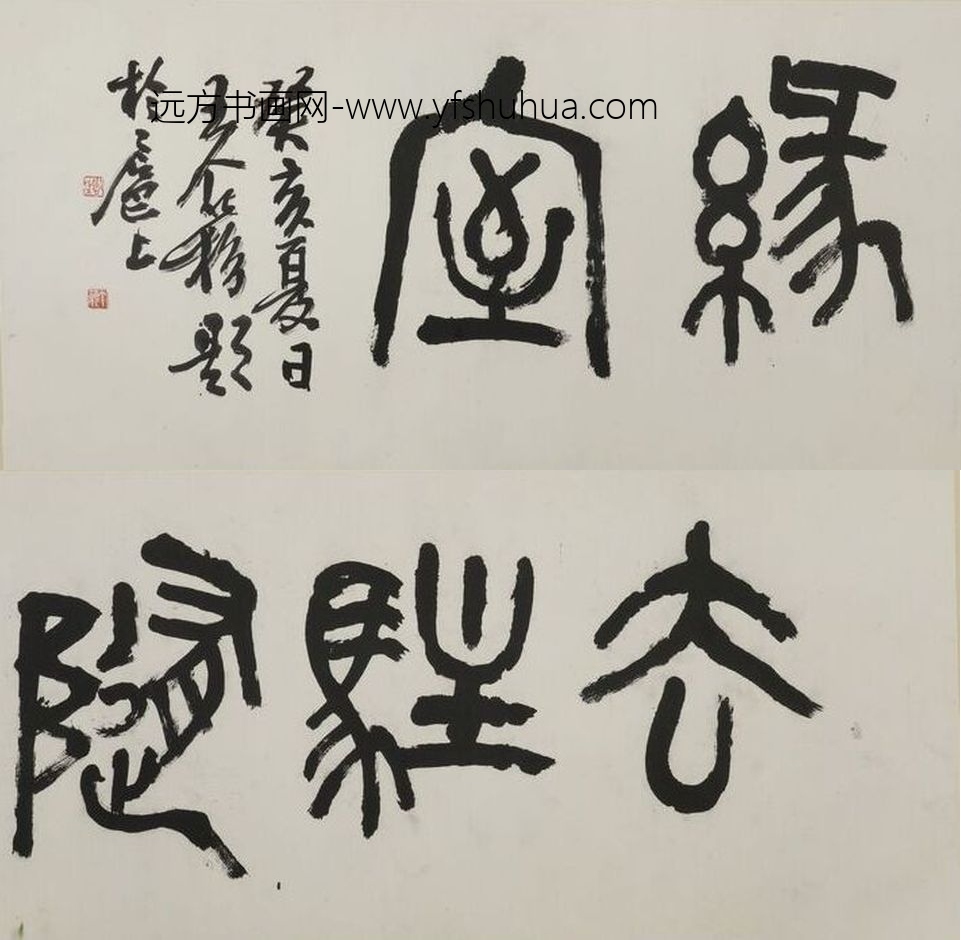 远方书画网-www.yfshuhua.com
緣室
癸亥夏日
王个簃題
於滬上
去駐隨